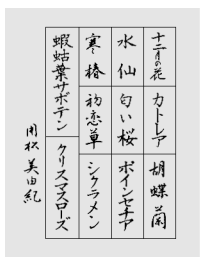 十二月の花
カトレア
胡蝶蘭
水仙
匂い桜
ポインセチア
寒椿
初恋草
シクラメン
蝦蛄葉サボテン
クリスマスローズ
美由紀